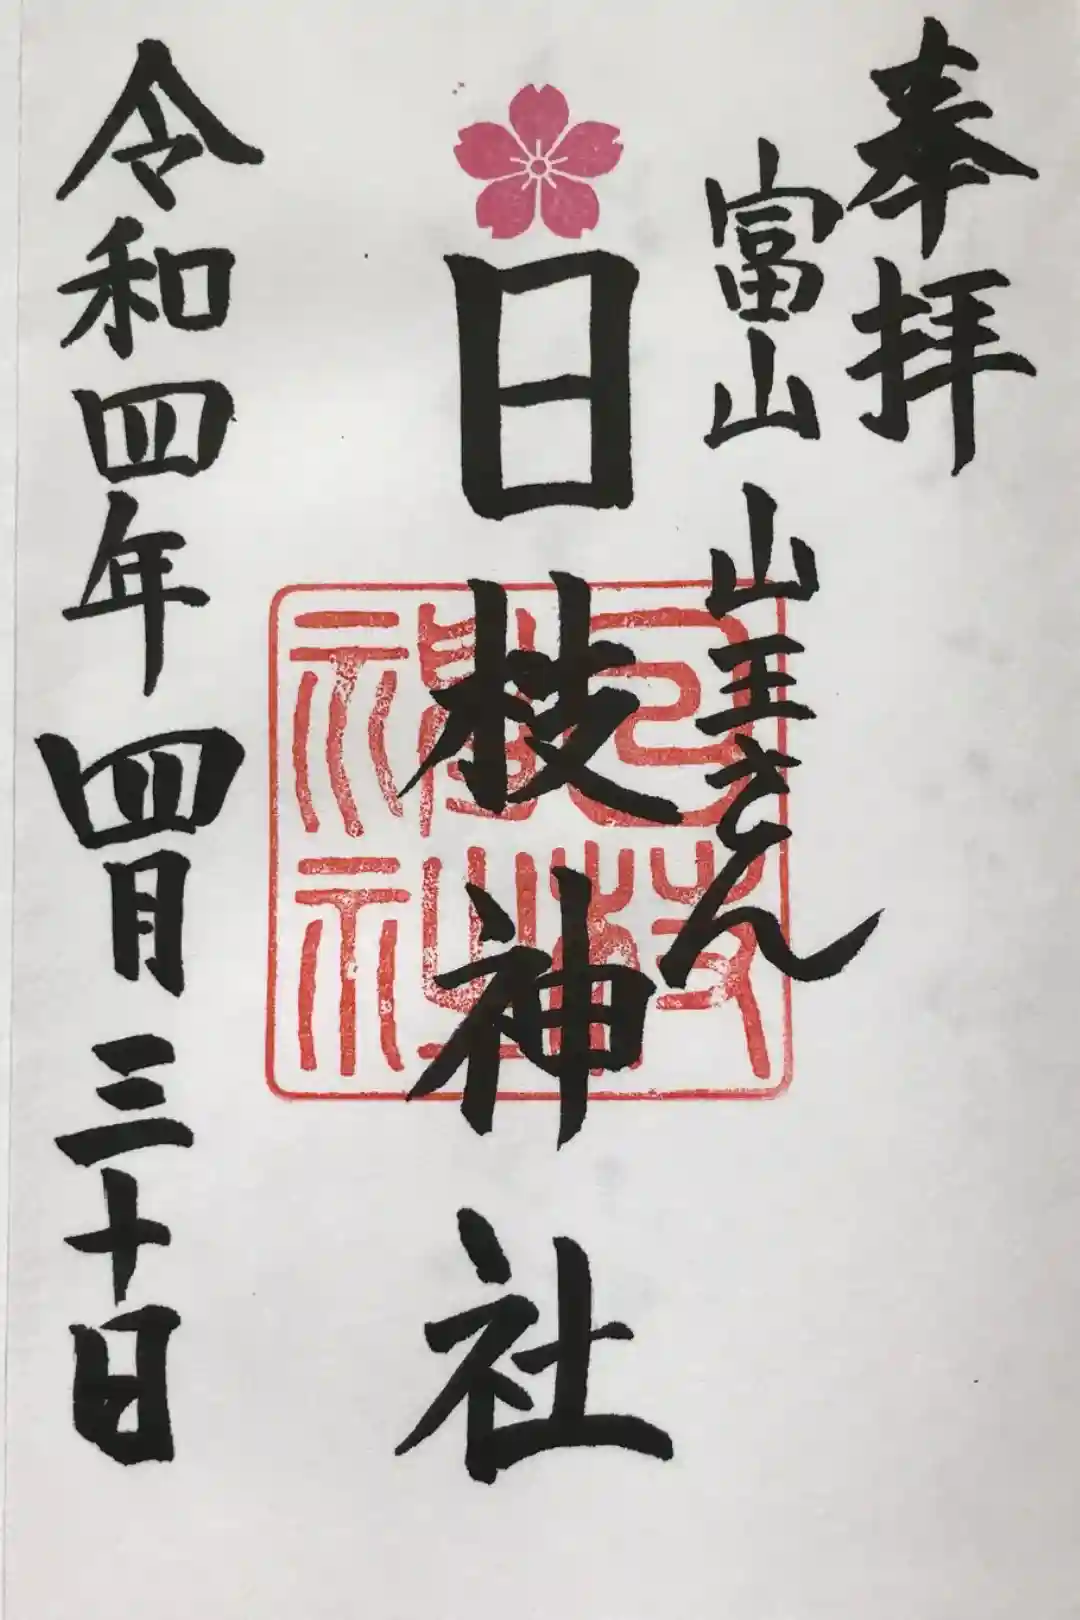 奉拝
富山 山王さん
日枝神社
日枝神社
令和四年四月三十日